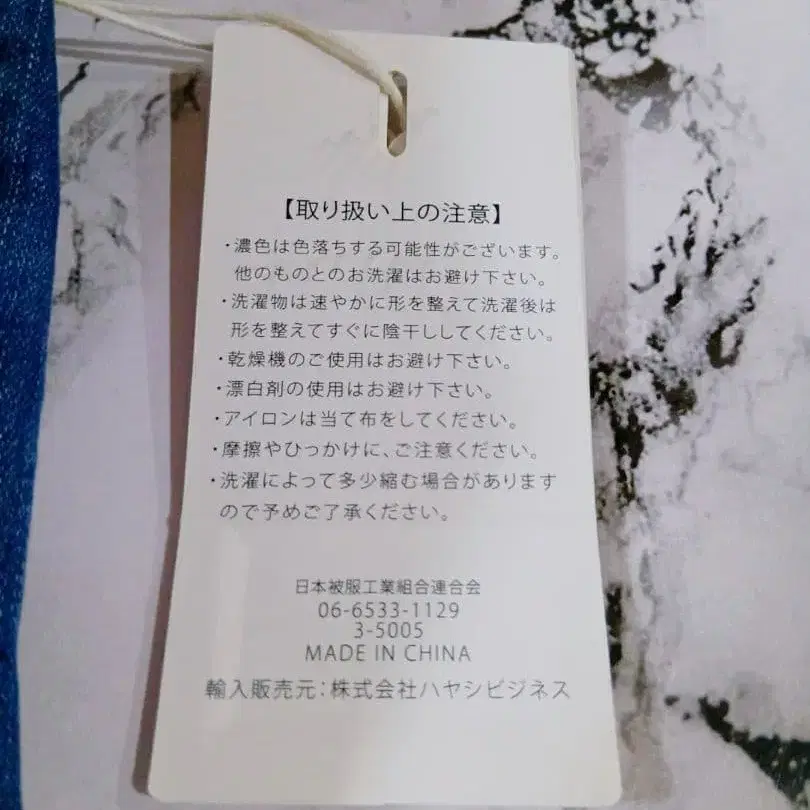 【取り扱い上の注意】
・濃色は色落ちする可能性がございます。
他のものとのお洗濯はお避け下さい。
・洗濯物は速やかに形を整えて洗濯後は
形を整えてすぐに陰干ししてください。
・乾燥機のご使用はお避け下さい。
・漂白剤の使用はお避け下さい。
・アイロンは当て布をしてください。
・摩擦やひっかけに、ご注意ください。
・洗濯によって多少縮む場合があります
ので予めご了承ください。
日本被服工業組合連合会
06-6533-1129
3-5005
MADE IN CHINA
輸入販売元：株式会社ハヤシビジネス